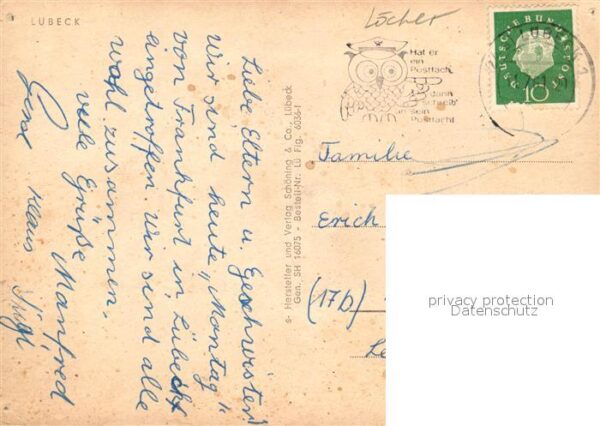 LÜBECK
Löcher
Hat er
ein
Postfach,
dann
schreib'
in sein
Postfach!
DEUTSCHE BUNDESPOST
10
Liebe Eltern u. Geschwister!
Wir sind heute „Montag"
von Frankfurt in Lübeck
eingetroffen. Wir sind alle
wohl zusammen.
viele Grüße
Klaus Manfred
s- Hersteller und Verlag Schöning & Co., Lübeck
Gen. SH 16075 - Bestell-Nr. Lü Flg. 6036-1
Familie
Erich
(17b)
privacy protection
Datenschutz